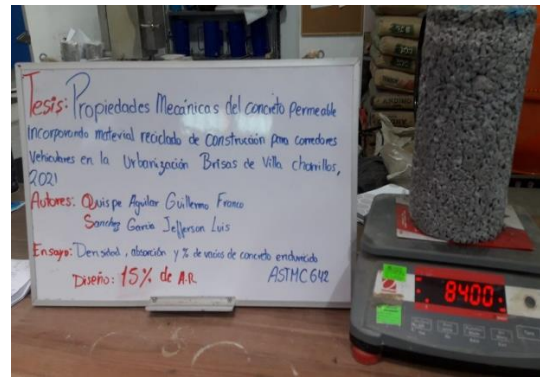 Tesis: Propiedades Mecánicas del concreto Permeable
Incorporando material reciclado de Construcción para corredores
Vehiculares en la Urbanización Brisas de Villa chorrillos,
2021
Autores: Quispe Aguilar Guillermo Franco
Sanchez Garcia Jefferson Luis
Ensayo: Densidad, absorción y % de vacios de concreto endurecido
Diseño: 15% de A.R ASTMC 642
8400